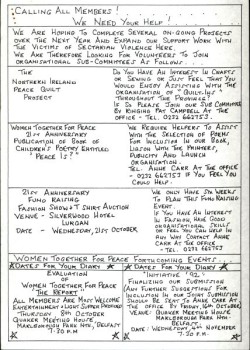 CALLING ALL MEMBERS!
WE NEED YOUR HELP!
WE ARE HOPING TO COMPLETE SEVERAL ON-GOING PROJECTS
OVER THE NEXT YEAR AND EXPAND OUR SUPPORT WORK WITH
THE VICTIMS OF SECTARIAN VIOLENCE HERE
WE ARE THEREFORE LOOKING FOR VOLUNTEERS TO JOIN
ORGANISATIONAL SUB-COMMITTEES AS FOLLOWS
THE
NORTHERN IRELAND
PEACE QUILT
PROJECT
DO YOU HAVE AN INTEREST IN CRAFTS
OR SEWING OR JUST FEEL THAT YOU
WOULD ENJOY ASSISTING WITH THE
ORGANISATION OF "QUILT-INS"
THROUGHOUT THE PROVINCE?
IF SO PLEASE JOIN OUR SUB COMMITTEE
BY RINGING PAT CAMPBELL AT THE
OFFICE - TEL. 0232 662753.
WOMEN TOGETHER FOR PEACE
21ST ANNIVERSARY
PUBLICATION OF BOOK OF
CHILDREN'S POETRY ENTITLED
"PEACE IS?"
WE REQUIRE HELPERS TO ASSIST
WITH THE SELECTION OF POEMS
FOR INCLUSION IN OUR BOOK,
LIAISON WITH THE PRINTERS,
PUBLICITY AND LAUNCH
ORGANISATION.
TEL. ANNE CARR AT THE OFFICE
- 0232 662753 IF YOU FEEL YOU
COULD HELP.
21ST ANNIVERSARY
FUND RAISING
FASHION SHOW & T. SHIRT AUCTION
VENUE - SILVERWOOD HOTEL
LURGAN
DATE - WEDNESDAY, 21ST OCTOBER
WE ONLY HAVE SIX WEEKS
TO PLAN THIS FUND RAISING
EVENT.
IF YOU HAVE AN INTEREST
IN FASHION, HAVE GOOD
ORGANISATIONAL SKILLS
OR FEEL YOU CAN HELP IN
ANY WAY CONTACT ANNE
CARR AT THE OFFICE
- TEL. 0232 662753
WOMEN TOGETHER FOR PEACE FORTHCOMING EVENTS
DATES FOR YOUR DIARY
EVALUATION
OF
WOMEN TOGETHER FOR PEACE
THE REPORT
ALL MEMBERS ARE MOST WELCOME
ENTERTAINMENT & LIGHT SUPPER PROVIDED
THURSDAY 8TH OCTOBER
QUAKER MEETING HOUSE,
MARLBOROUGH PARK NTH, BELFAST
7.30 P.M.
DATES FOR YOUR DIARY
"INITIATIVE '92"
FINALIZING OUR SUBMISSION
ANY FURTHER SUGGESTIONS FOR
INCLUSION IN OUR JOINT SUBMISSION
SHOULD BE SENT TO ANNE CARR AT
THE OFFICE BY FRIDAY, 16TH OCTOBER.
VENUE: QUAKER MEETING HOUSE
MARLBOROUGH PARK NTH
BELFAST.
DATE: WEDNESDAY, 4TH NOVEMBER
7.30 P.M.